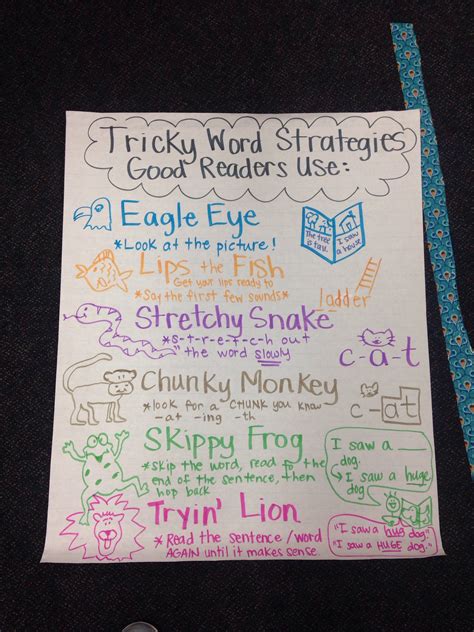 Tricky Word Strategies
Good Readers Use:
Eagle Eye
*Look at the picture!
The tree
is tall.
I saw
a house
Lips the Fish
Get your lips ready to
*Say the first few sounds*
ladder
Stretchy Snake
*s-t-r-e-t-c-h out
the word slowly
c-a-t
Chunky Monkey
*look for a CHUNK you know
-at -ing -th
c-at
Skippy Frog
*skip the word, read to the
end of the sentence, then
hop back
I saw a ___
dog.
I saw a huge
dog.
Tryin' Lion
* Read the sentence/word
AGAIN until it makes sense.
"I saw a hug dog."
"I saw a HUGE dog."